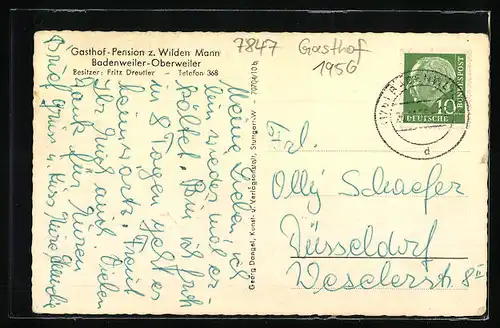 Gasthof-Pension z. Wilden Mann
Badenweiler-Oberweiler
Besitzer: Fritz Dreutler – Telefon 368
7847 Gasthof
1956
Meine Lieben ich
bin wieder mal er-
kältet. Bin ich froh
in 8 Tagen geht es
heimwärts. Freut
Ihr Euch auch. Vielen
Dank für Euren
Brief. Gruß u. Kuss
Georg Dangel, Kunst- u. Verlagsanstalt, Stuttgart-W
DEUTSCHE
BUNDESPOST
10
d
Frl.
Olly Schaefer
Düsseldorf
Weselerstr. 8